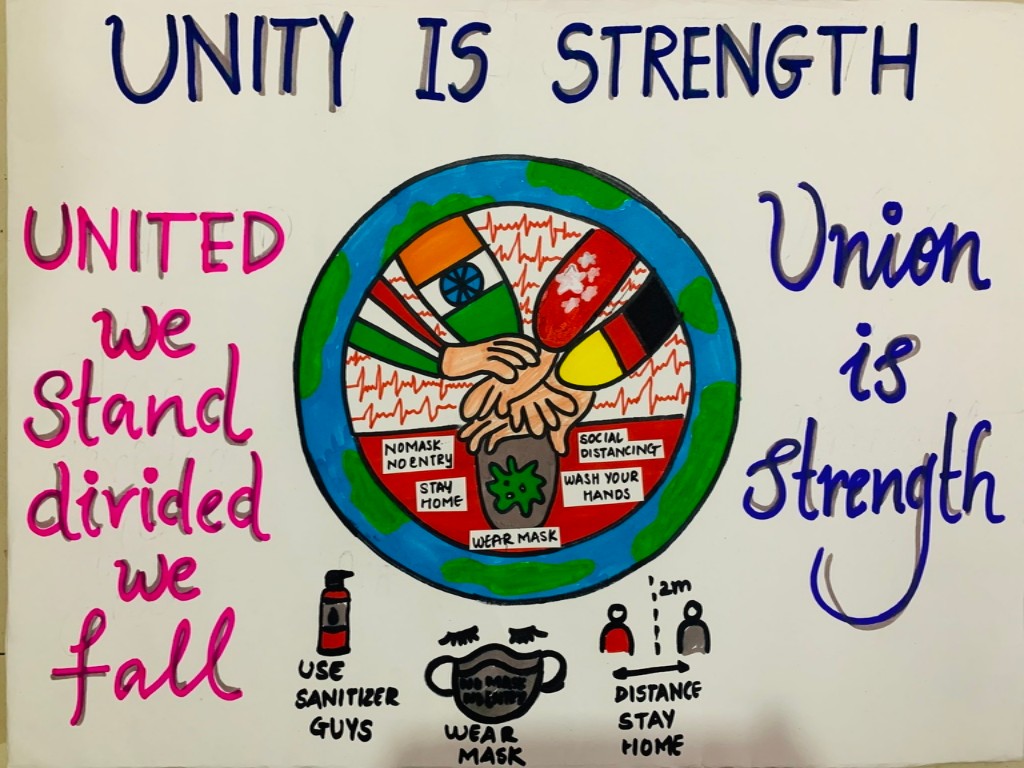 UNITY IS STRENGTH
UNITED
we
Stand
divided
we
fall
Union
is
Strength
NOMASK
NO ENTRY
STAY
HOME
SOCIAL
DISTANCING
WASH YOUR
HANDS
WEAR MASK
USE
SANITIZER
GUYS
NO MASK
NO ENTRY
WEAR
MASK
2m
DISTANCE
STAY
HOME